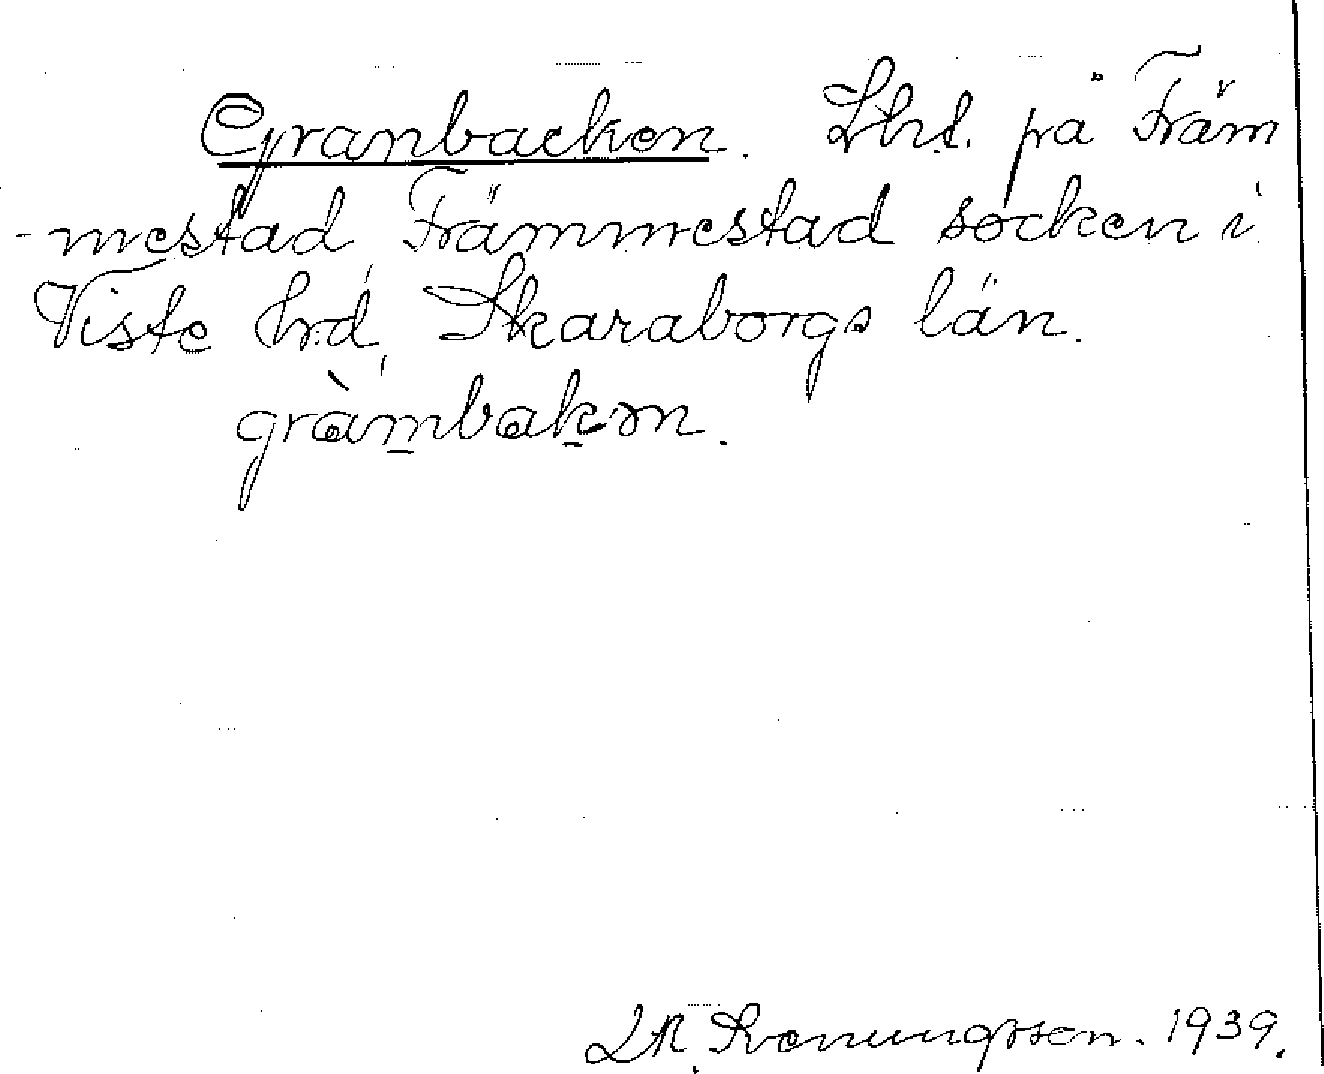 Granbacken. Lht. på Främ
-mestad, Främmestad socken i
Viste hrd, Skaraborgs län.
gràmbakən.
Svenungsson. 1939.